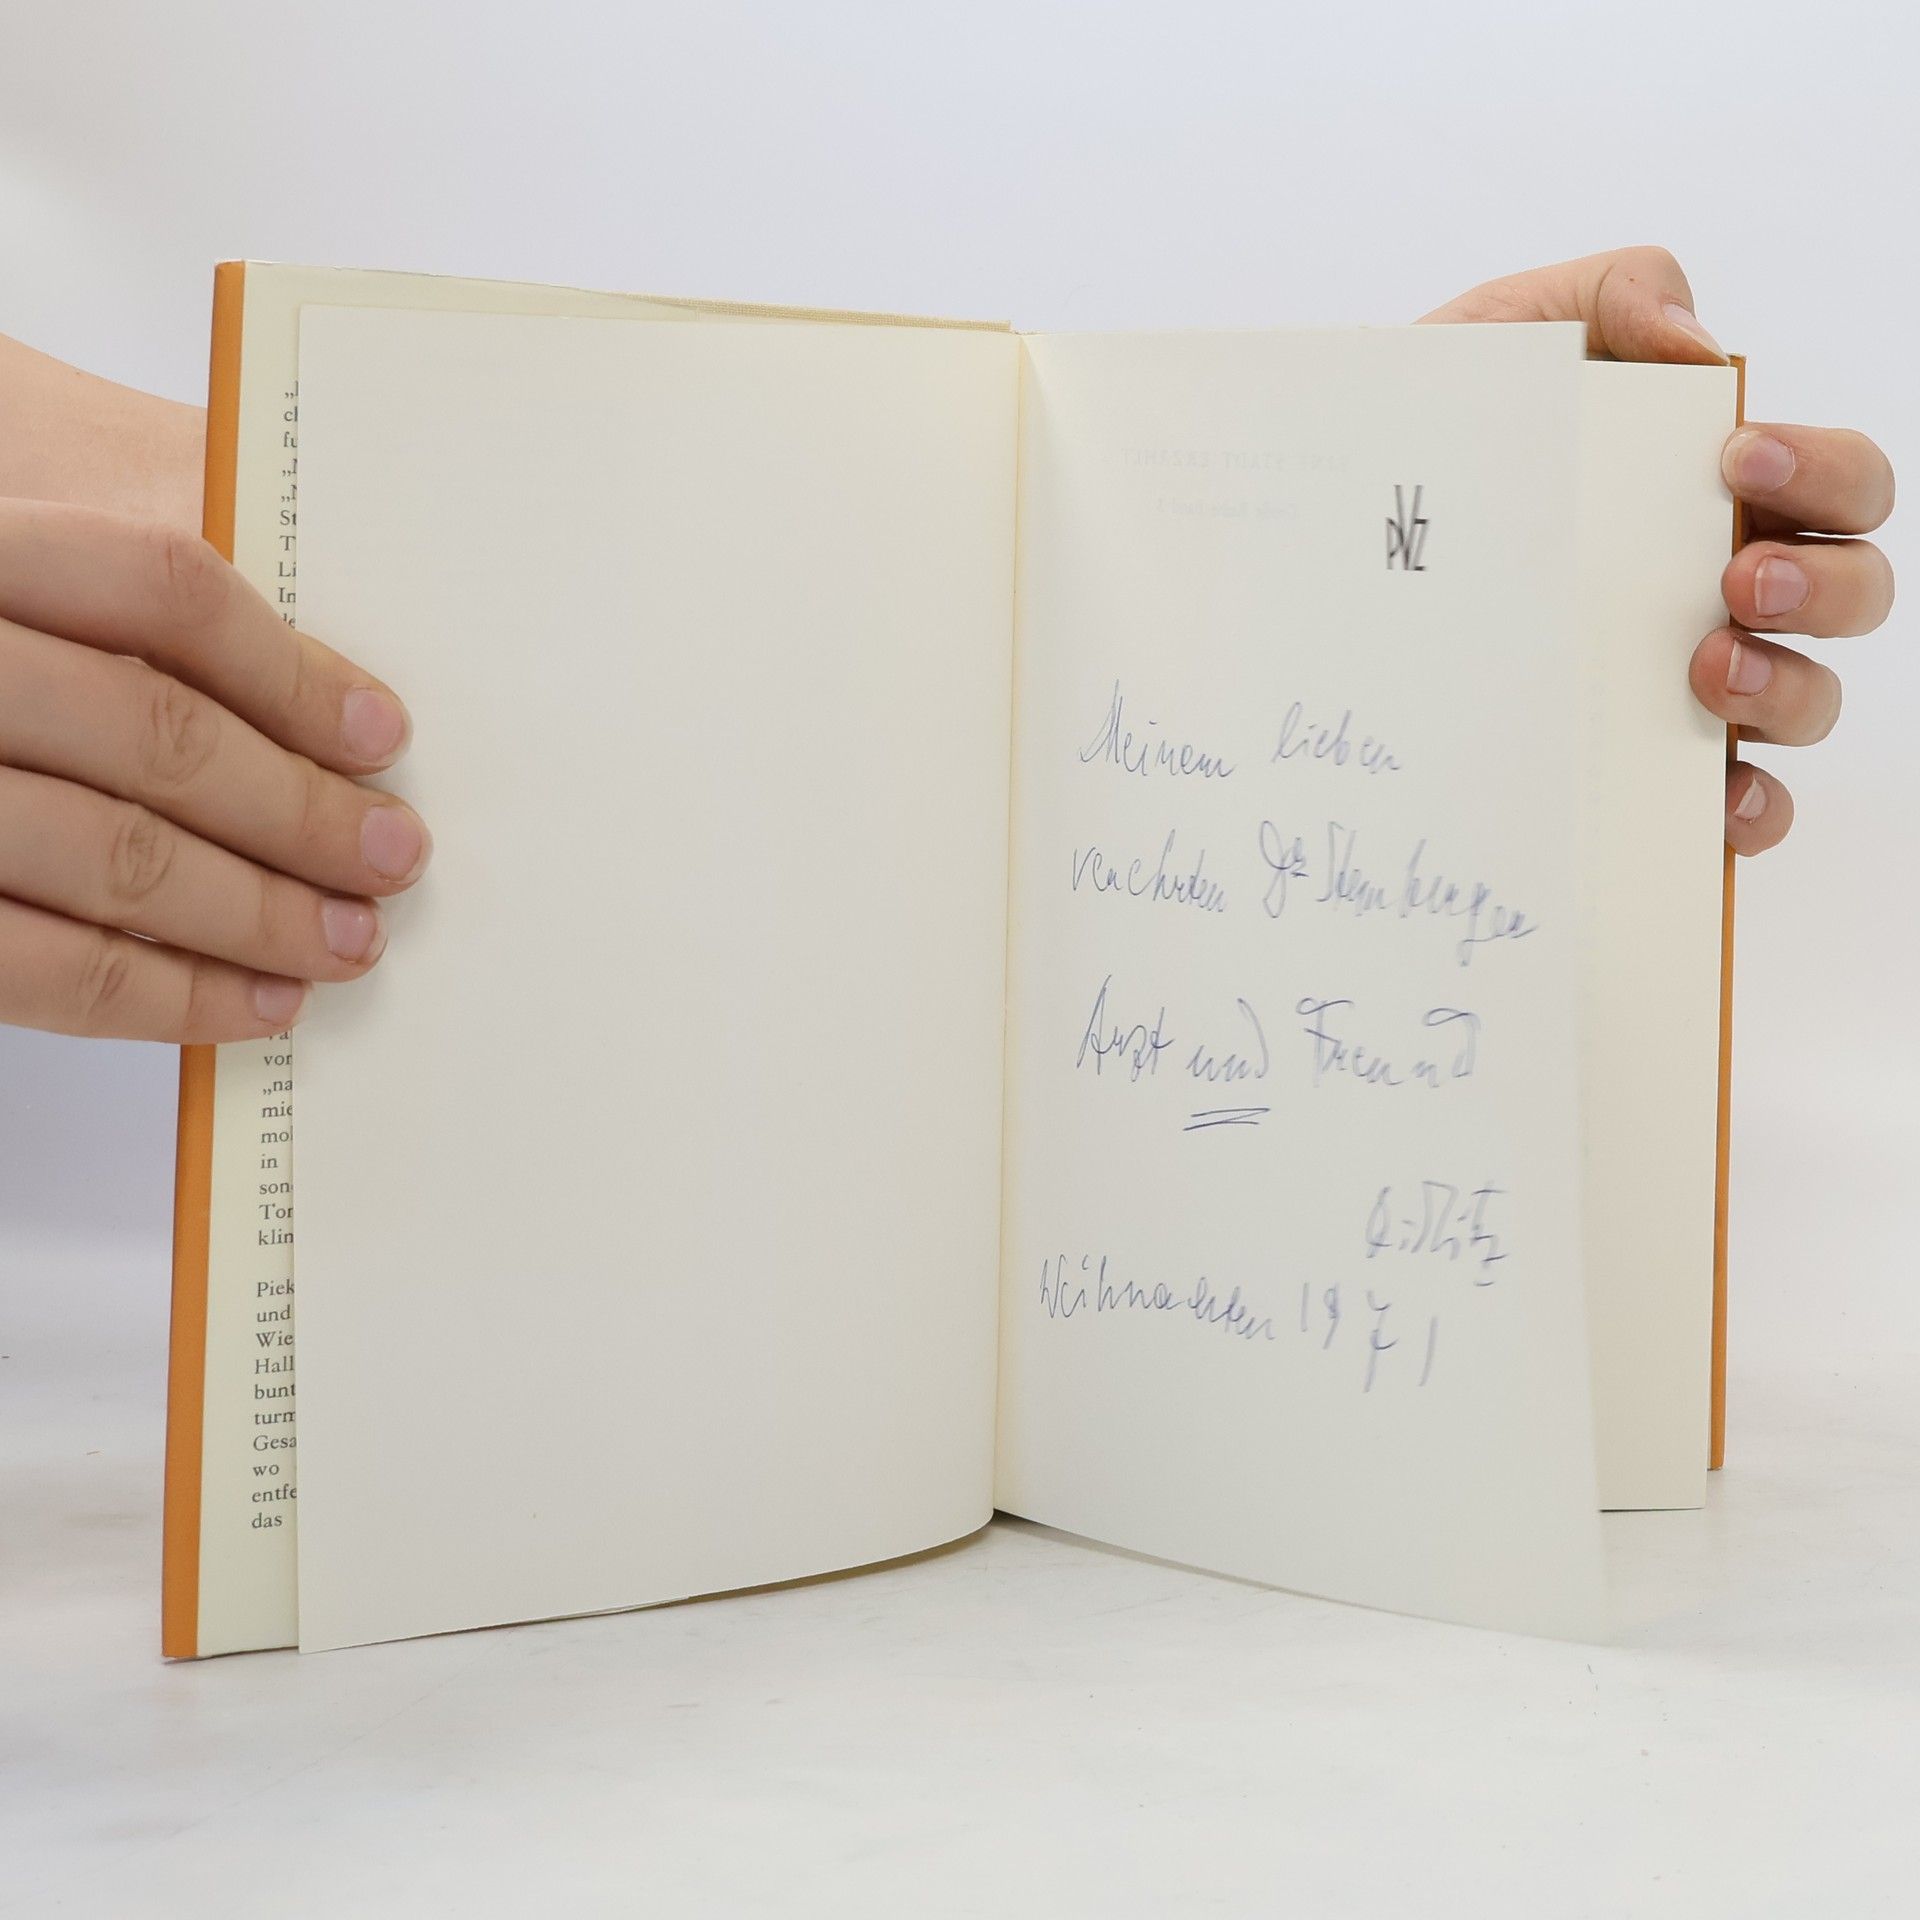 „
ch
fu
„
„N
St
T
Li
In
de
vor
„na
mie
mol
in
son
Tor
klin
Piek
und
Wie
Hall
bunt
turm
Gesa
wo
entfe
das
PVZ
Meinem lieben
verehrten Dr
Arzt und Freund
Weihnachten 1971